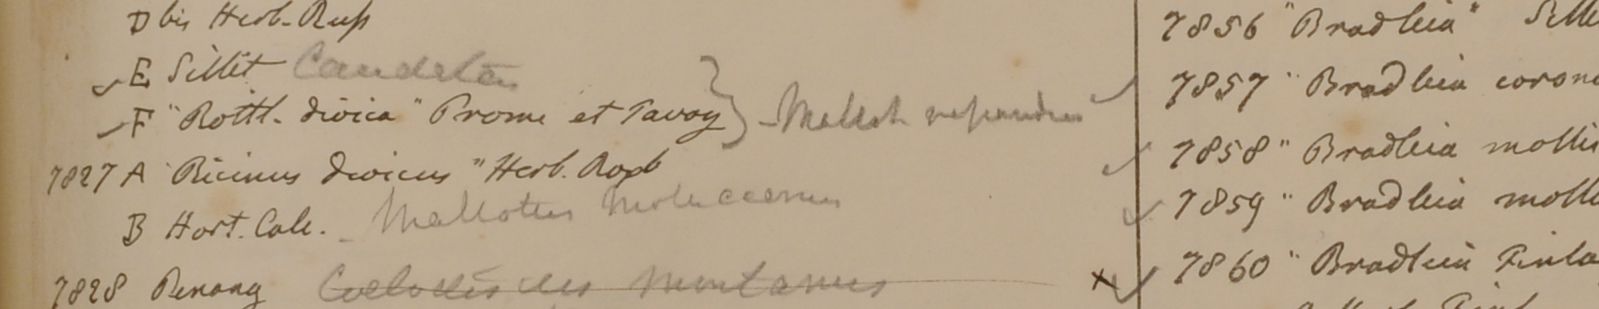 D bis Herb. Russ
E Sillet
F "Rottl. dioica" Prome et Tavoy } - Mallot. repandus
7827 A "Ricinus dioicus" Herb. Roxb
B Hort. Calc. - Mallotus moluccanus
7828 Penang montanus
7856 "Bradleia" Sille
7857 "Bradleia corone
7858 "Bradleia mollis
7859 "Bradleia molli
7860 "Bradleia Finla